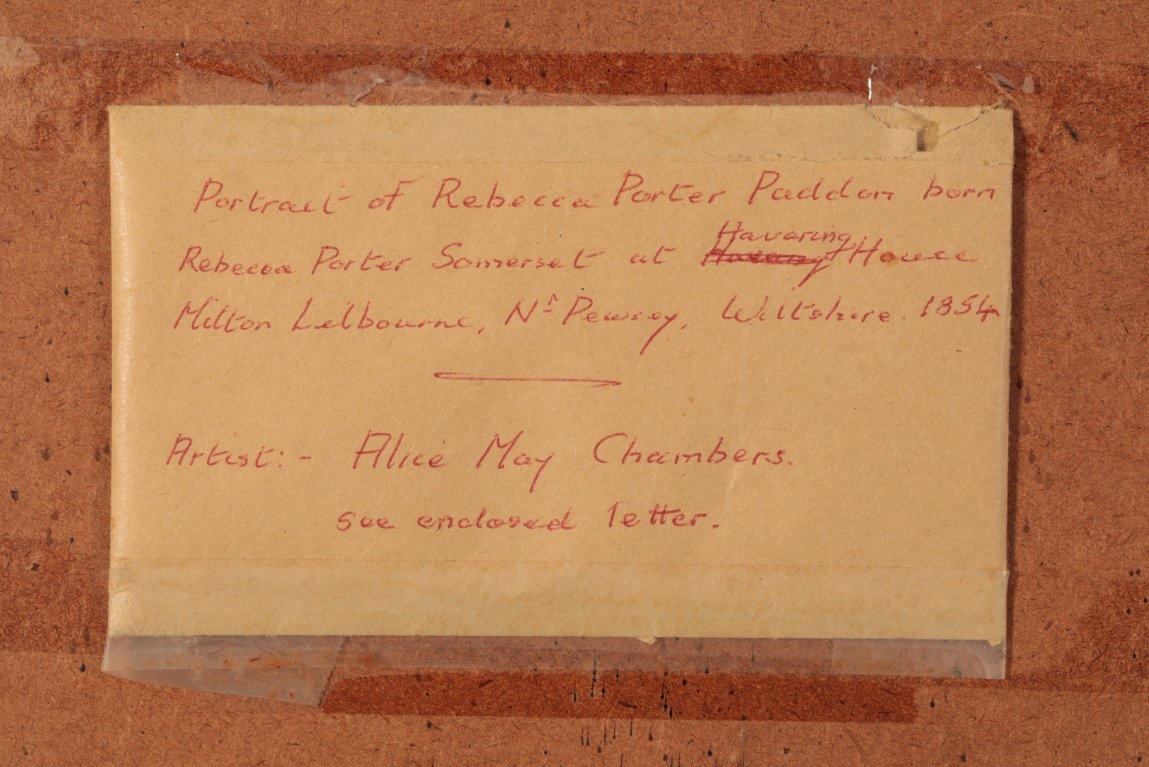 Portrait of Rebecca Porter Paddon born
Rebecca Porter Somerset at Havering House
Milton Lilbourne, Nr Pewsey, Wiltshire. 1854
Artist:- Alice May Chambers.
see enclosed letter.